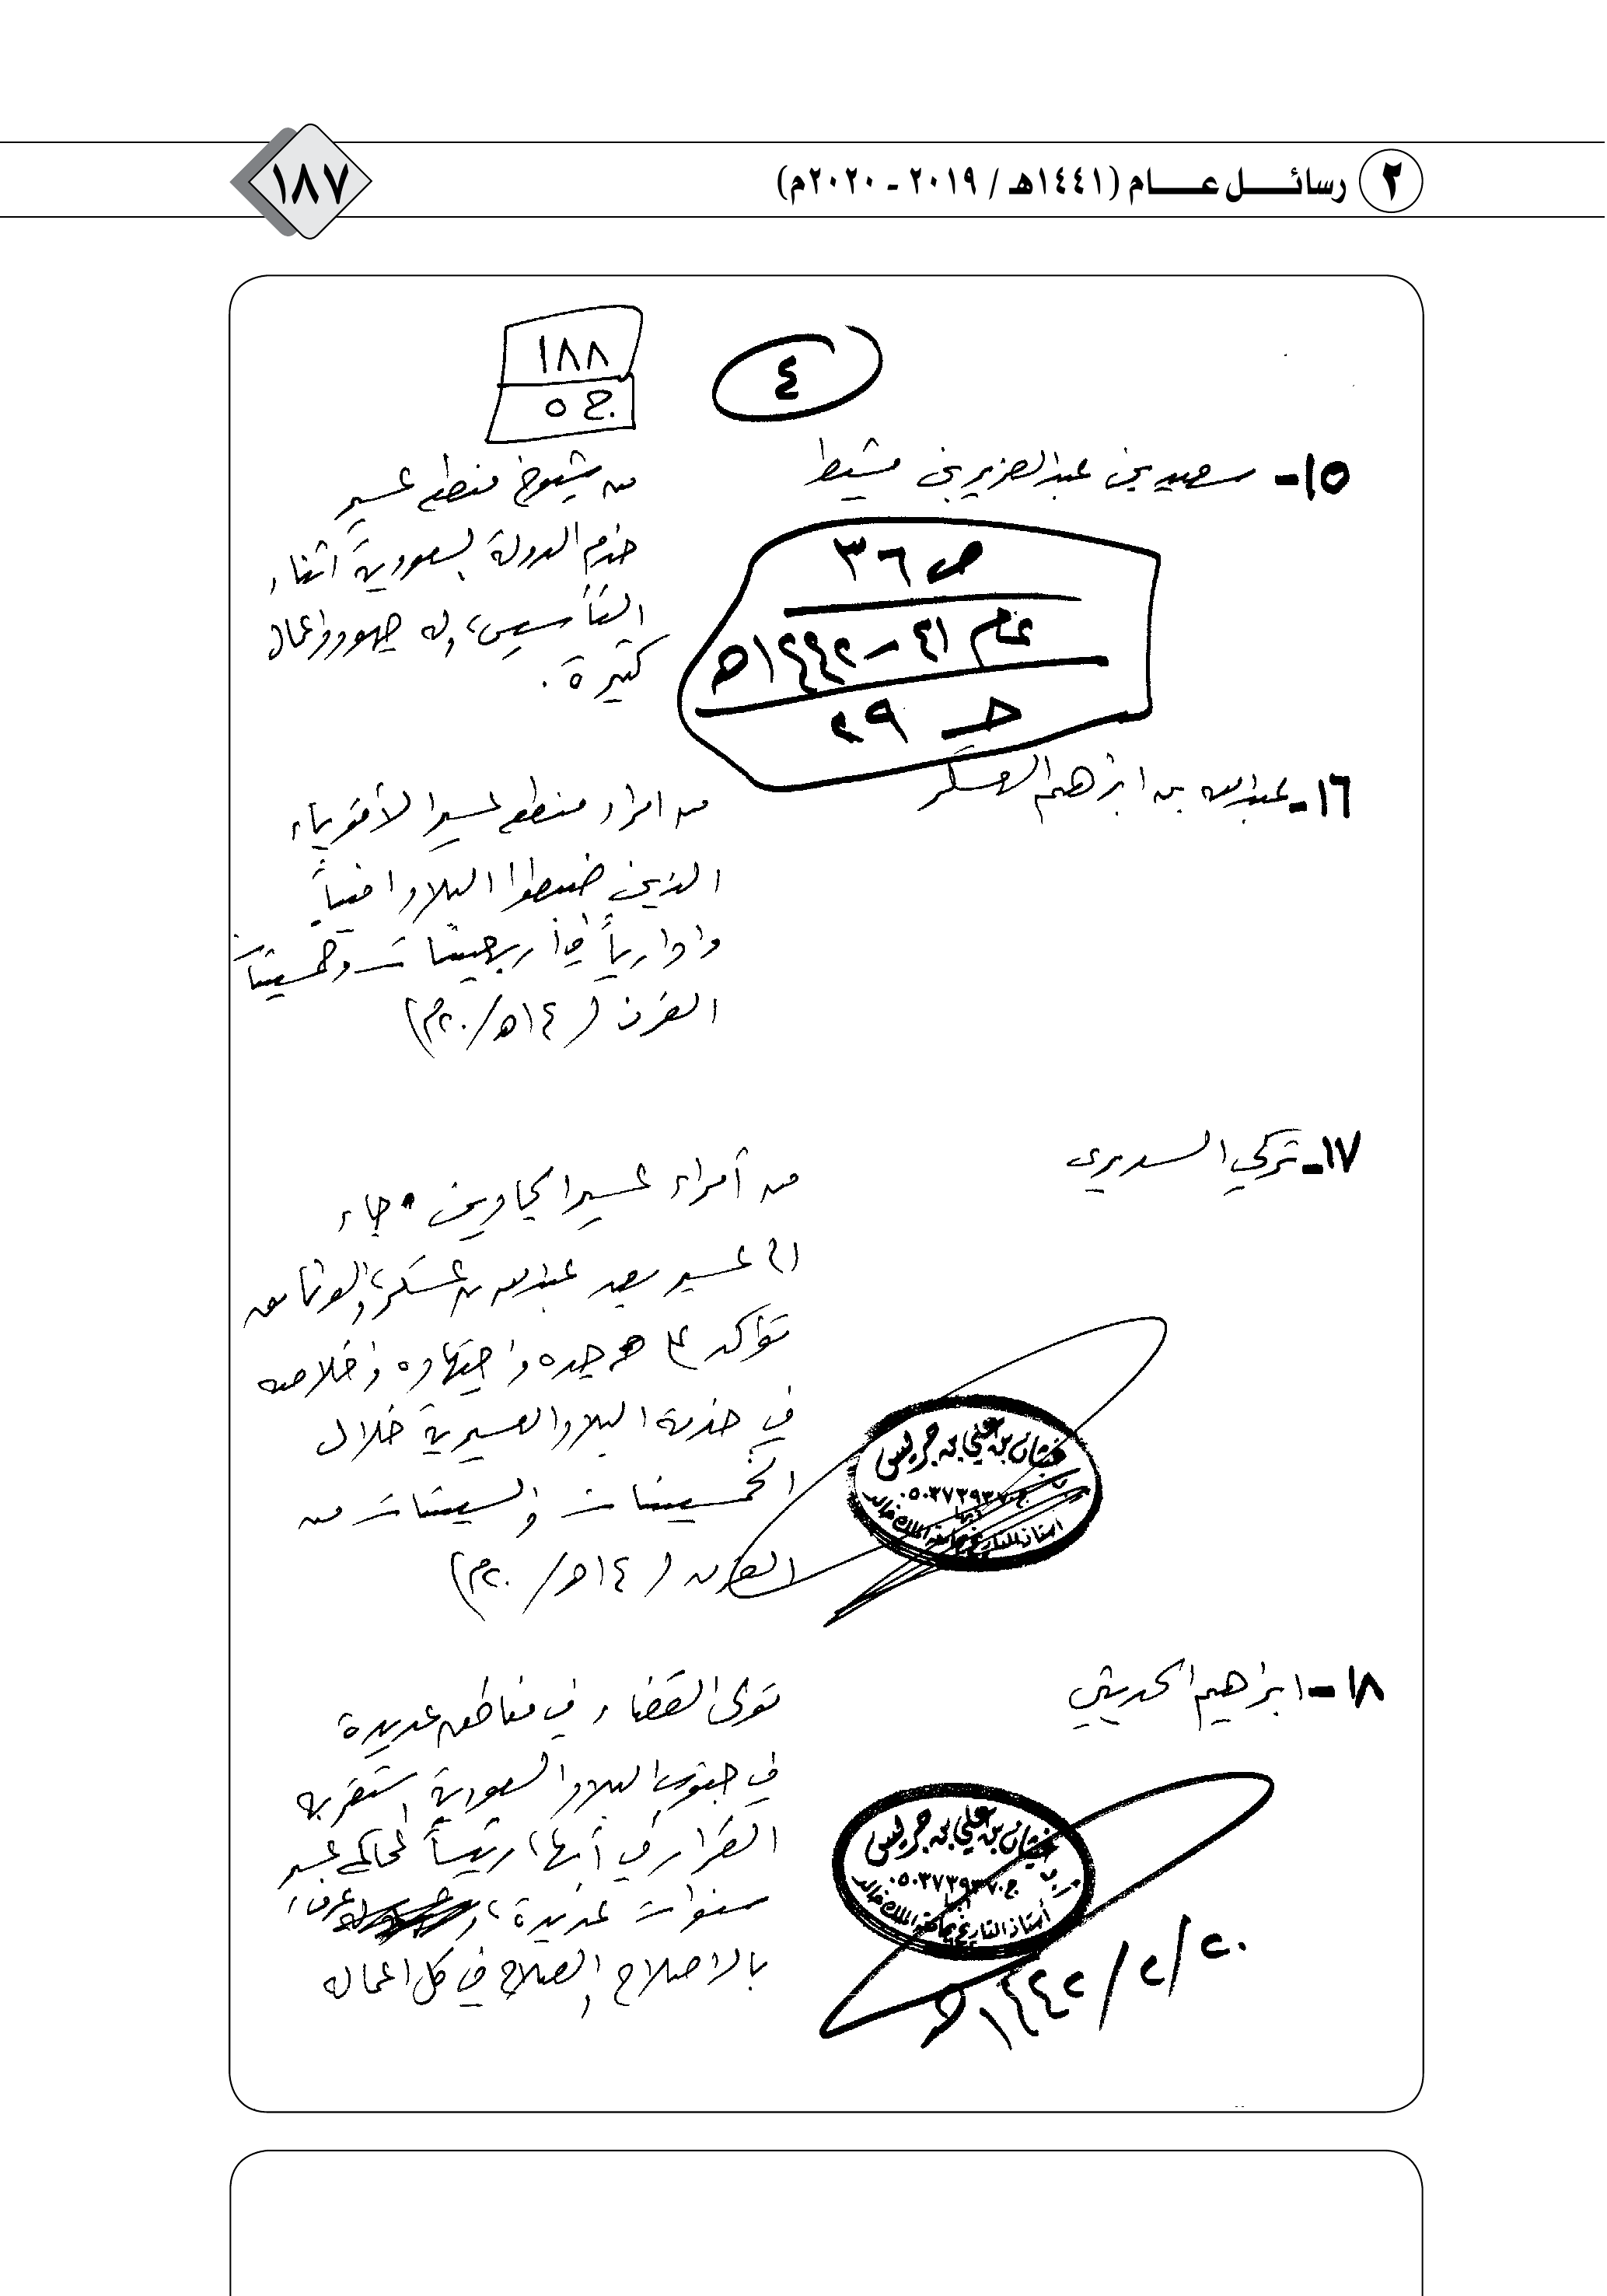 ٢ رسائل عام (١٤٤١هـ / ٢٠١٩ - ٢٠٢٠م)
١٨٧
١٨٨
ج ٥
٤
١٥- سعيد بن عبدالعزيز بن مشيط
من شيوخ منطقة عسير
خدم الدولة السعودية اثناء
التأسيس، وله جهود واعمال
كثيرة.
ص ٣٦
عام ٤١ - ١٤٤٢هـ
جـ ٢٩
١٦- عبدالله بن ابراهيم العسكر
من امراء منطقة عسير الأقوياء
الذين ضبطوا البلاد امنياً
وادارياً في أربعينيات وخمسينيات
القرن (١٤هـ/٢٠م)
١٧- تركي السديري
من أمراء عسير الجادين، جاء
الى عسير بعد عبدالله بن عسكر، والوثائق
تؤكد على جده واجتهاده واخلاصه
في خدمة البلاد العسيرية خلال
الخمسينيات والستينيات من
القرن (١٤هـ/٢٠م)
غيثان بن علي بن جريس
ج ٠٥٠٣٧٢٩٣٧٠
أبها
استاذ التاريخ بجامعة الملك خالد
١٨- ابراهيم الحديثي
تولى القضاء في مناطق عديدة
في جنوب البلاد السعودية، استقر به
القرار في أبها، رئيساً لمحاكم عسير
سنوات عديدة، وعرف،
بالاصلاح والصلاح في كل اعماله
غيثان بن علي بن جريس
ج ٠٥٠٣٧٢٩٣٧٠
أبها
أستاذ التاريخ بجامعة الملك خالد
٢٠/٢/١٤٤٢هـ